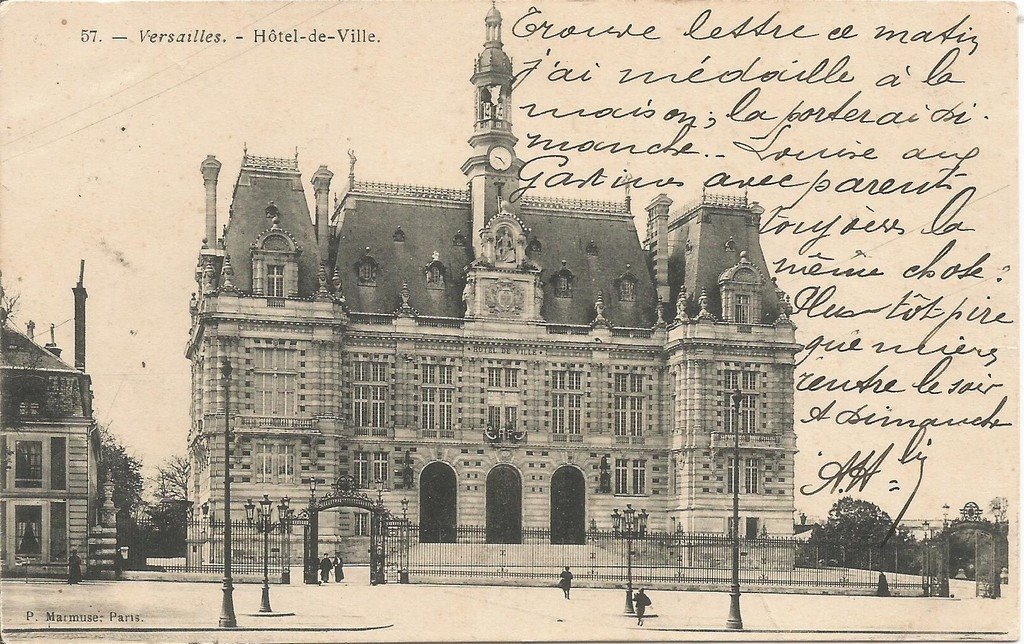 57. — Versailles. - Hôtel-de-Ville.
Trouve lettre ce matin
j'ai médaille à la
maison; la porterai di-
manche.. Louise aux
Gastines avec parents
toujours la
même chose:
Plus tôt pire
que mieux
rentre le soir
A Dimanche
HÔTEL DE VILLE
P. Marmuse; Paris.